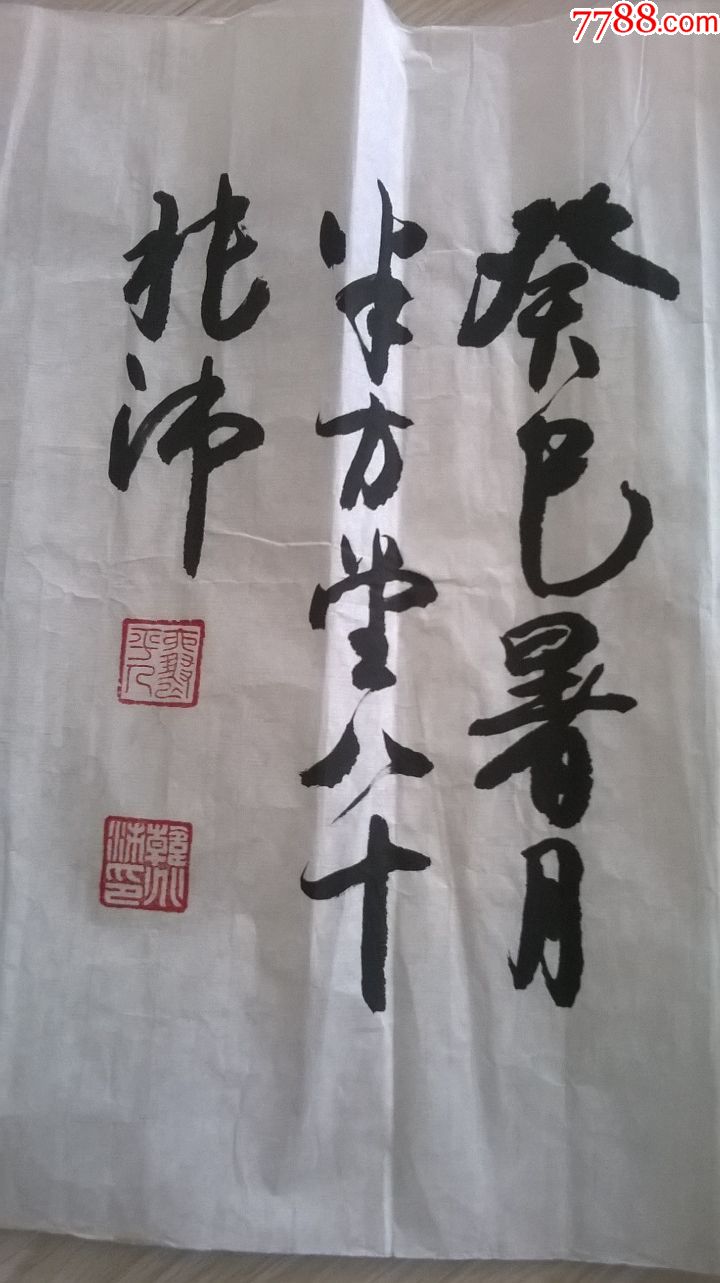 7788.com
癸巳暑月
半方堂八十
沛